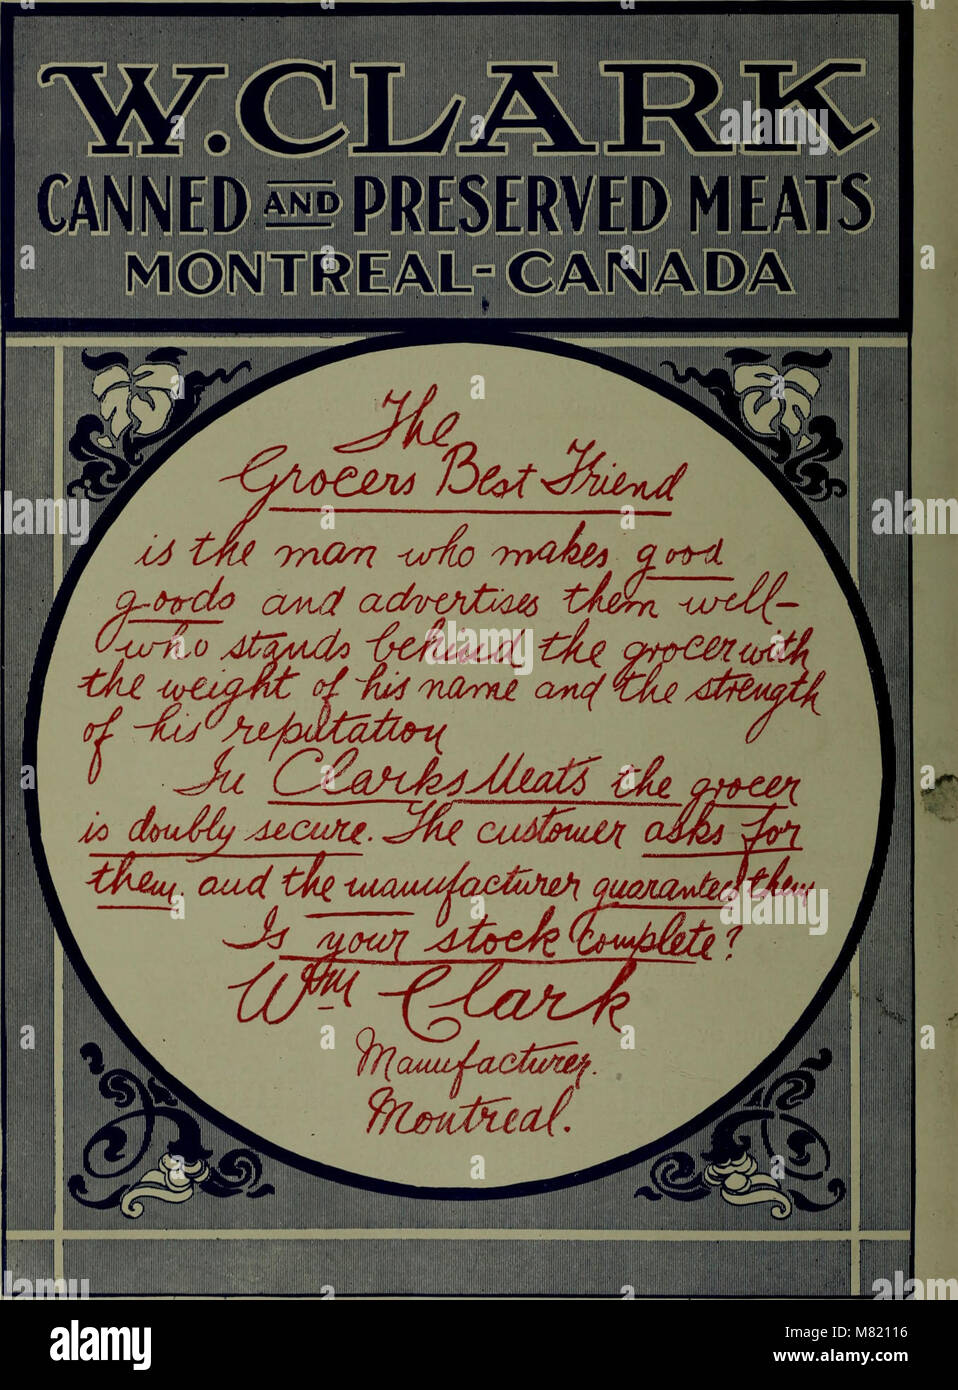 W. CLARK
CANNED AND PRESERVED MEATS
MONTREAL-CANADA
The
Grocers Best Friend
is the man who makes good
goods and advertises them well-
who stands behind the grocer with
the weight of his name and the strength
of his reputation
In Clarks Meats the grocer
is doubly secure. The customer asks for
them. and the manufacturer guarantees them
Is your stock complete?
Wm Clark
Manufacturer.
Montreal.
alamy
alamy stock photo
M82116
www.alamy.com